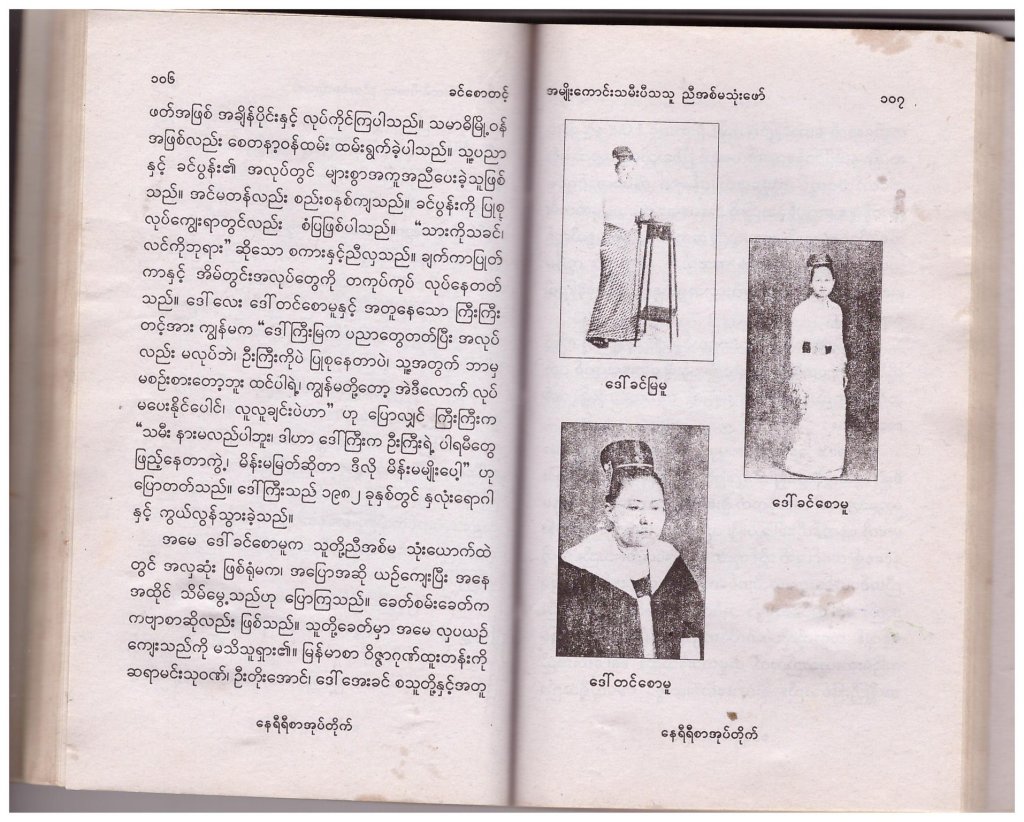 ၁၀၆
ခင်စောတင့်
ဖတ်အဖြစ် အချိန်ပိုင်းနှင့် လုပ်ကိုင်ကြပါသည်။ သမာဓိမြို့ဝန်
အဖြစ်လည်း စေတနာ့ဝန်ထမ်း ထမ်းရွက်ခဲ့ပါသည်။ သူ့ပညာ
နှင့် ခင်ပွန်း၏ အလုပ်တွင် များစွာအကူအညီပေးခဲ့သူဖြစ်
သည်။ အင်မတန်လည်း စည်းစနစ်ကျသည်။ ခင်ပွန်းကို ပြုစု
လုပ်ကျွေးရာတွင်လည်း စံပြဖြစ်ပါသည်။ “သားကိုသခင်၊
လင်ကိုဘုရား” ဆိုသော စကားနှင့်ညီလှသည်။ ချက်ကာပြုတ်
ကာနှင့် အိမ်တွင်းအလုပ်တွေကို တကုပ်ကုပ် လုပ်နေတတ်
သည်။ ဒေါ်လေး ဒေါ်တင်စောမူနှင့် အတူနေသော ကြီးကြီး
တင့်အား ကျွန်မက “ဒေါ်ကြီးမြက ပညာတွေတတ်ပြီး အလုပ်
လည်း မလုပ်ဘဲ၊ ဦးကြီးကိုပဲ ပြုစုနေတာပဲ၊ သူ့အတွက် ဘာမှ
မစဉ်းစားတော့ဘူး ထင်ပါရဲ့၊ ကျွန်မတို့တော့ အဲဒီလောက် လုပ်
မပေးနိုင်ပေါင်၊ လူလူချင်းပဲဟာ” ဟု ပြောလျှင် ကြီးကြီးက
“သမီး နားမလည်ပါဘူး၊ ဒါဟာ ဒေါ်ကြီးက ဦးကြီးရဲ့ ပါရမီတွေ
ဖြည့်နေတာကွဲ့၊ မိန်းမမြတ်ဆိုတာ ဒီလို မိန်းမမျိုးပေါ့” ဟု
ပြောတတ်သည်။ ဒေါ်ကြီးသည် ၁၉၈၂ ခုနှစ်တွင် နှလုံးရောဂါ
နှင့် ကွယ်လွန်သွားခဲ့သည်။
အမေ ဒေါ်ခင်စောမူက သူတို့ညီအစ်မ သုံးယောက်ထဲ
တွင် အလှဆုံး ဖြစ်ရုံမက၊ အပြောအဆို ယဉ်ကျေးပြီး အနေ
အထိုင် သိမ်မွေ့သည်ဟု ပြောကြသည်။ ခေတ်စမ်းခေတ်က
ကဗျာစာဆိုလည်း ဖြစ်သည်။ သူတို့ခေတ်မှာ အမေ လှပယဉ်
ကျေးသည်ကို မသိသူရှား၏။ မြန်မာစာ ဝိဇ္ဇာဂုဏ်ထူးတန်းကို
ဆရာမင်းသုဝဏ်၊ ဦးတိုးအောင်၊ ဒေါ်အေးခင် စသူတို့နှင့်အတူ
နေရီရီစာအုပ်တိုက်
အမျိုးကောင်းသမီးပီသသူ ညီအစ်မသုံးဖော်
၁၀၇
ဒေါ်ခင်မြမူ
ဒေါ်ခင်စောမူ
ဒေါ်တင်စောမူ
နေရီရီစာအုပ်တိုက်